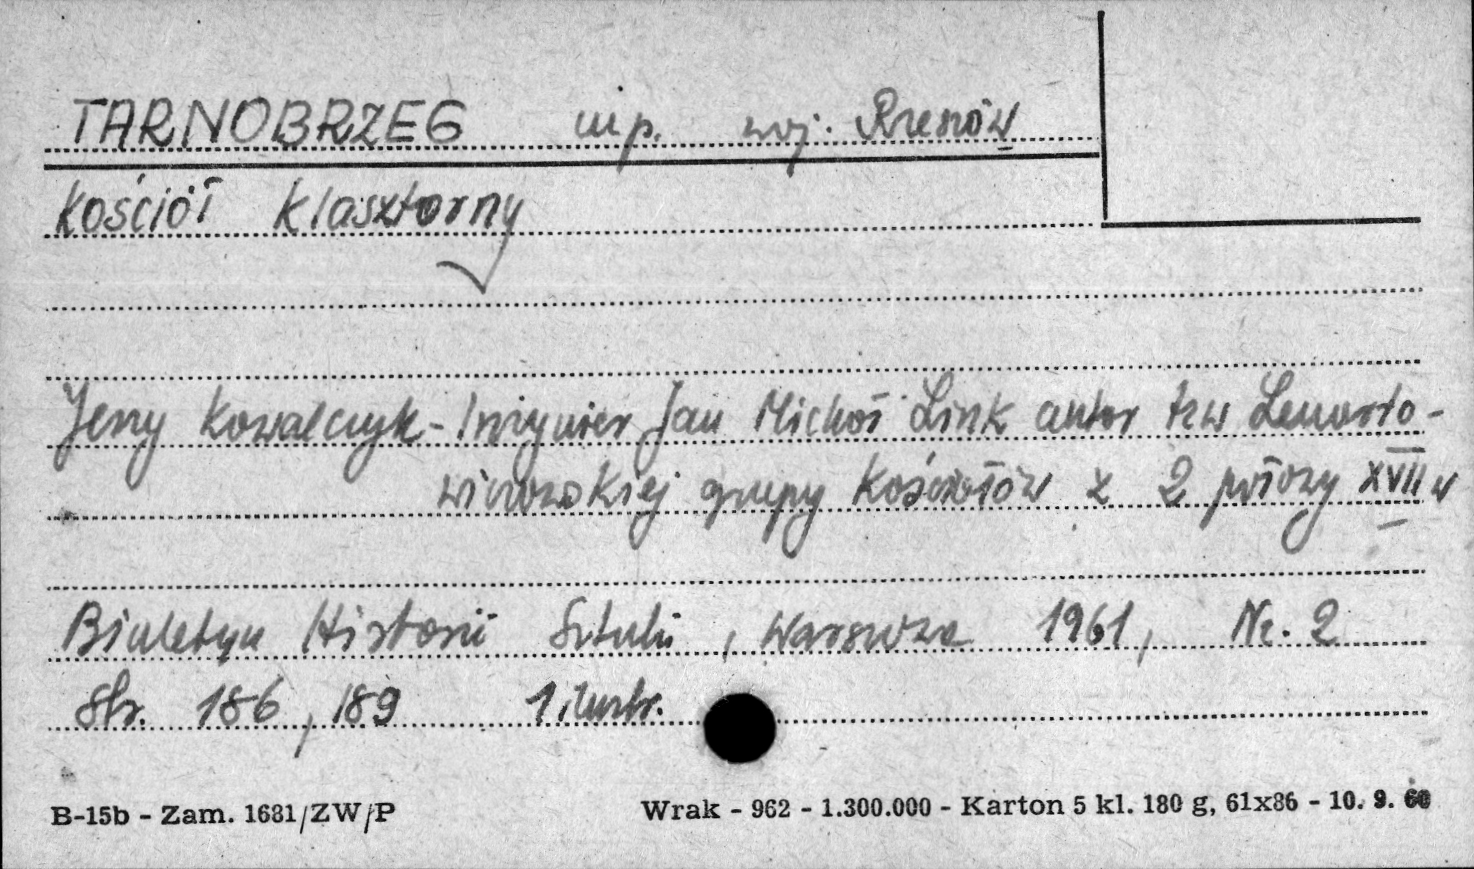 TARNOBRZEG mp. woj. Rzeszów
Kościół klasztorny
Jerzy Kowalczyk - Inżynier Jan Michał Link autor tzw Lenarto-
wiczowskiej grupy kościołów z 2 połowy XVII w
Biuletyn Historii Sztuki, Warszawa 1961, Nr. 2
Str. 186, 189 1 ilustr.
B-15b - Zam. 1681/ZW/P Wrak - 962 - 1.300.000 - Karton 5 kl. 180 g, 61x86 - 10. 9. 60